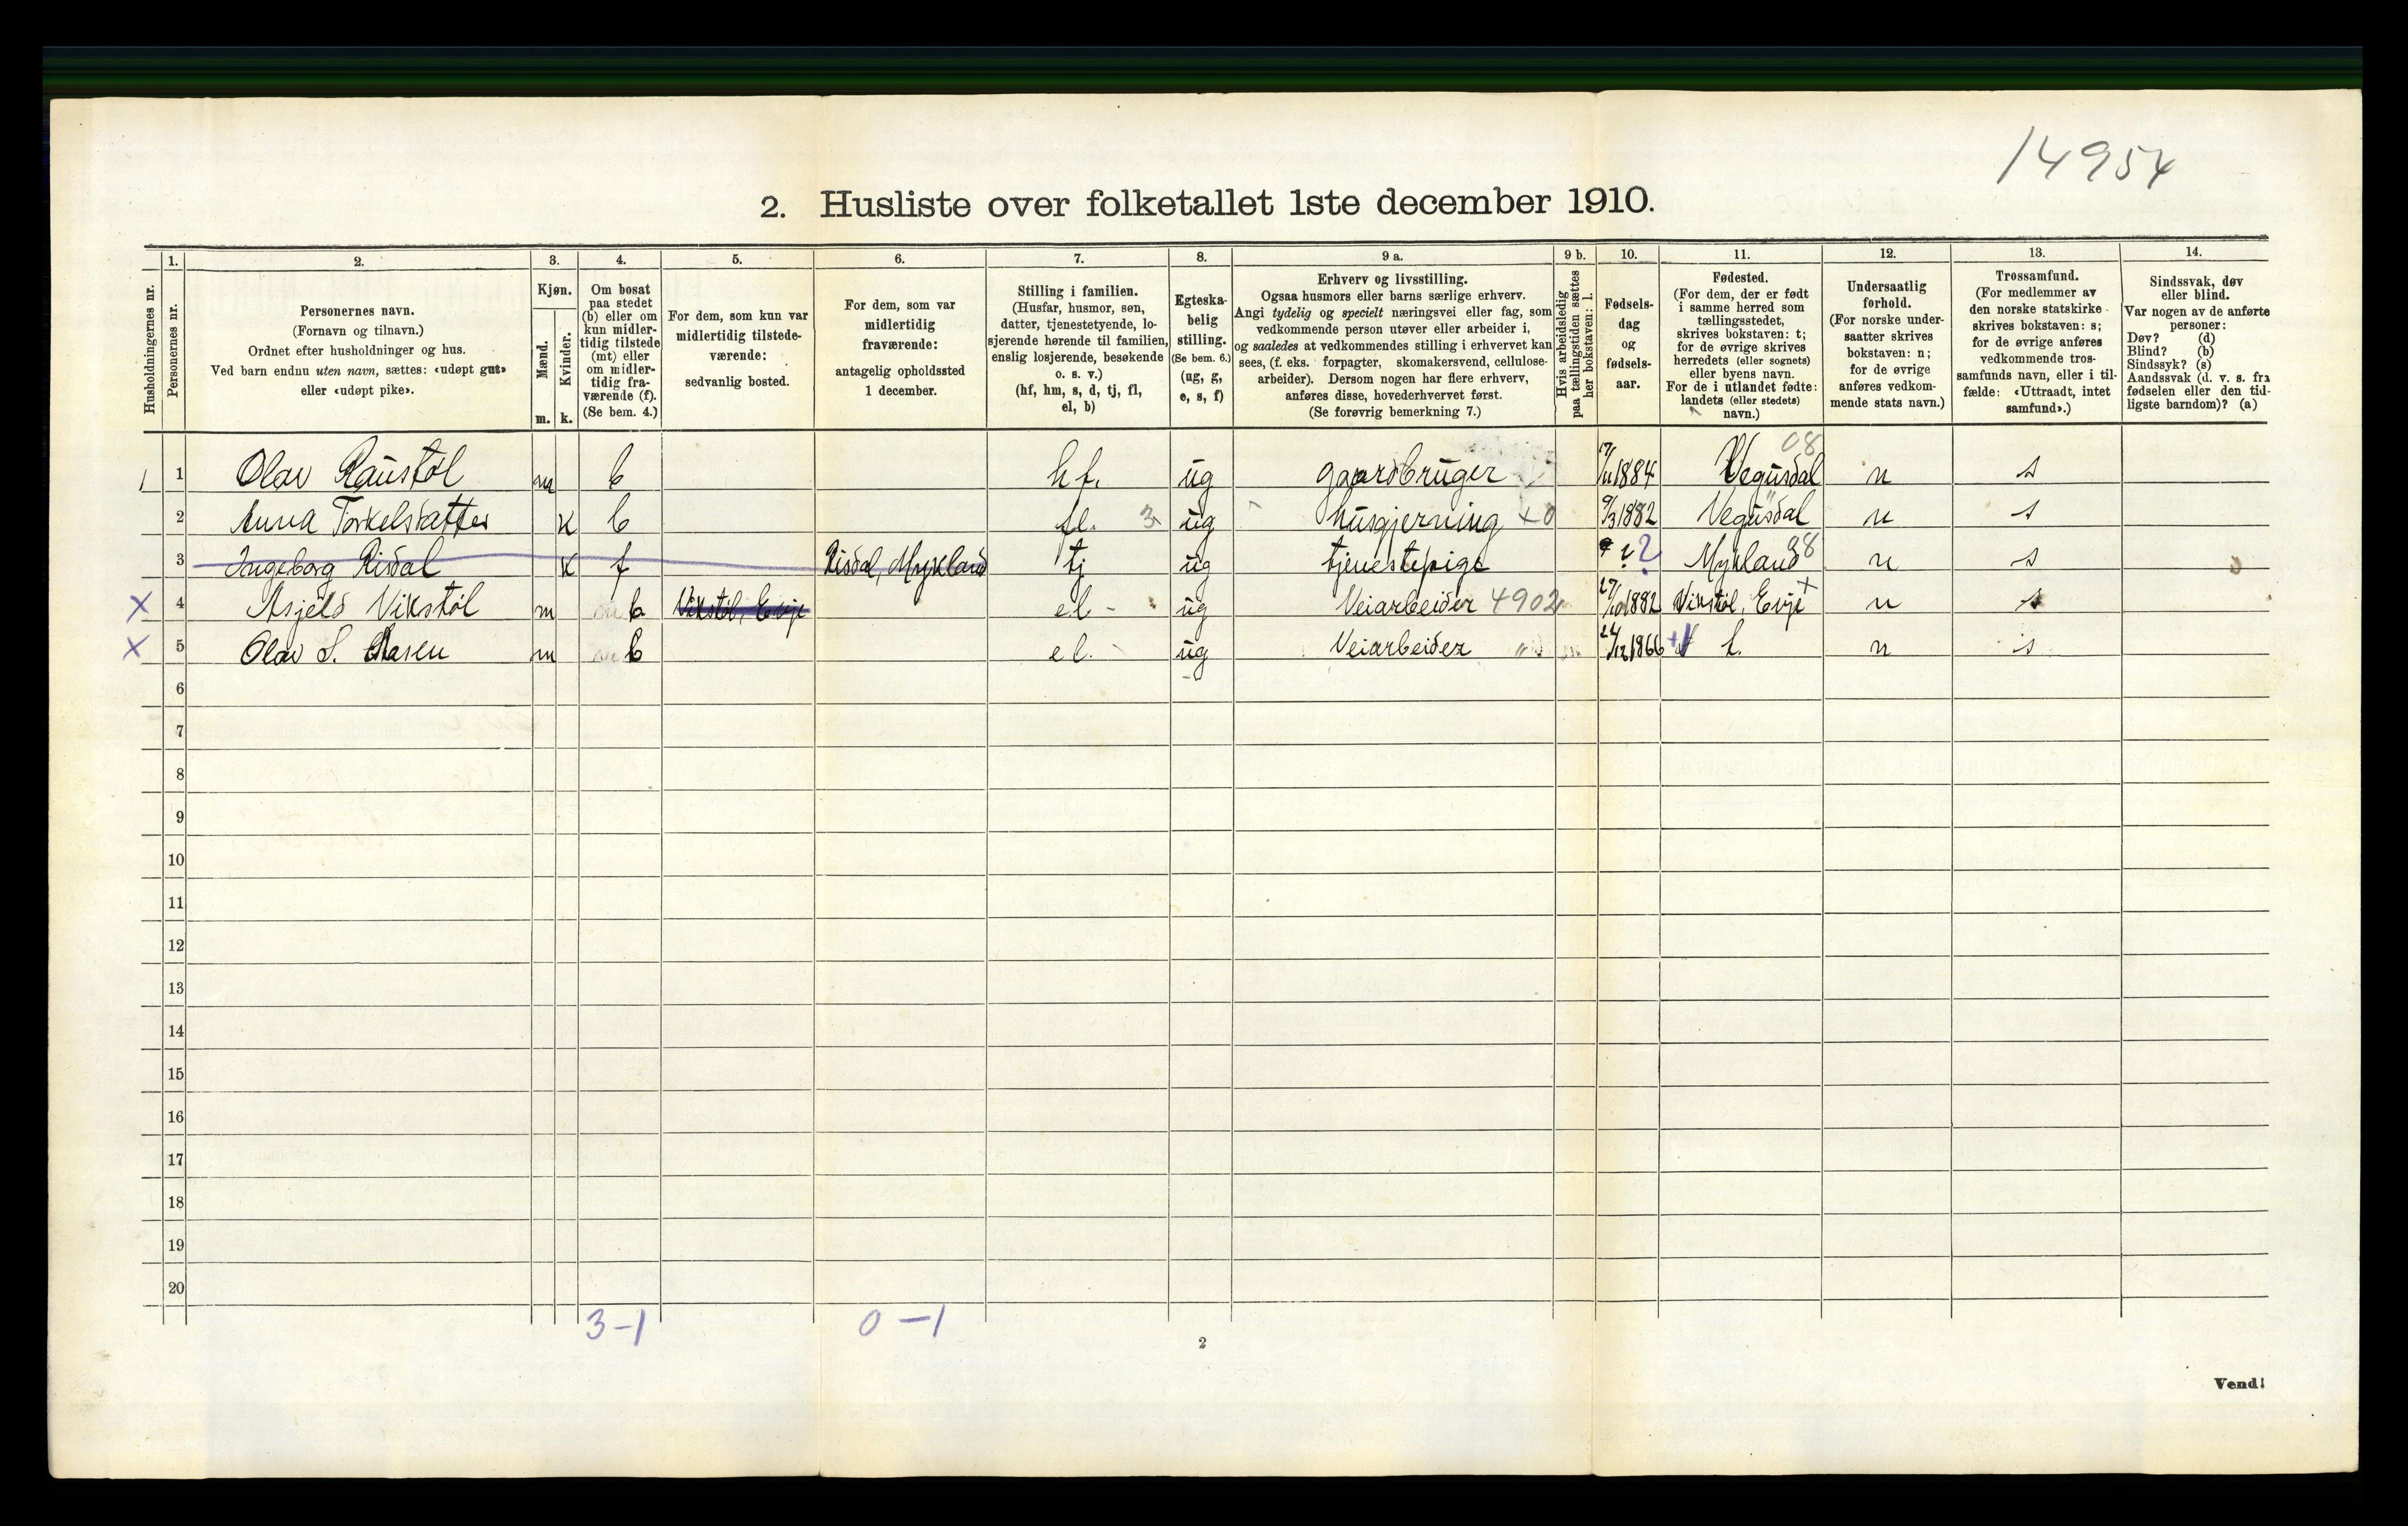 14954
2. Husliste over folketallet 1ste december 1910.
Husholdningernes nr.
1. Personernes nr.
2. Personernes navn. (Fornavn og tilnavn.) Ordnet efter husholdninger og hus. Ved barn endnu uten navn, sættes: «udøpt gut» eller «udøpt pike».
3. Kjøn. Mænd. m. Kvinder. k.
4. Om bosat paa stedet (b) eller om kun midlertidig tilstede (mt) eller om midlertidig fraværende (f). (Se bem. 4.)
5. For dem, som kun var midlertidig tilstedeværende: sedvanlig bosted.
6. For dem, som var midlertidig fraværende: antagelig opholdssted 1 december.
7. Stilling i familien. (Husfar, husmor, søn, datter, tjenestetyende, losjerende hørende til familien, enslig losjerende, besøkende o. s. v.) (hf, hm, s, d, tj, fl, el, b)
8. Egteskabelig stilling. (Se bem. 6.) (ug, g, e, s, f)
9 a. Erhverv og livsstilling. Ogsaa husmors eller barns særlige erhverv. Angi tydelig og specielt næringsvei eller fag, som vedkommende person utøver eller arbeider i, og saaledes at vedkommendes stilling i erhvervet kan sees, (f. eks. forpagter, skomakersvend, cellulosearbeider). Dersom nogen har flere erhverv, anføres disse, hovederhvervet først. (Se forøvrig bemerkning 7.)
9 b. Hvis arbeidsledig paa tællingstiden sættes her bokstaven: l.
10. Fødselsdag og fødselsaar.
11. Fødested. (For dem, der er født i samme herred som tællingsstedet, skrives bokstaven: t; for de øvrige skrives herredets (eller sognets) eller byens navn. For de i utlandet fødte: landets (eller stedets) navn.)
12. Undersaatlig forhold. (For norske undersaatter skrives bokstaven: n; for de øvrige anføres vedkommende stats navn.)
13. Trossamfund. (For medlemmer av den norske statskirke skrives bokstaven: s; for de øvrige anføres vedkommende trossamfunds navn, eller i tilfælde: «Uttraadt, intet samfund».)
14. Sindssvak, døv eller blind. Var nogen av de anførte personer: Døv? (d) Blind? (b) Sindssyk? (s) Aandssvak (d. v. s. fra fødselen eller den tidligste barndom)? (a)
1 1 Olav Raustøl m b hf. ug gaardbruger 17/11 1884 Vegusdal 08 n s
2 Anna Torkelsdatter k b fl. 3 ug husgjerning +0 9/3 1882 Vegusdal n s
3 Ingeborg Risdal k f Risdal, Mykland tj ug tjenestepige ? ? Mykland 98 n s
X 4 Asjeld Vikstøl m b Vikstøl, Evje el - ug Veiarbeider 4902 27/10 1882 Vikstøl, Evje + n s
X 5 Olav S. Aasen m b el. ug Veiarbeider 24/12 1866 t. n s
6
7
8
9
10
11
12
13
14
15
16
17
18
19
20
3-1 0-1
2
Vend!